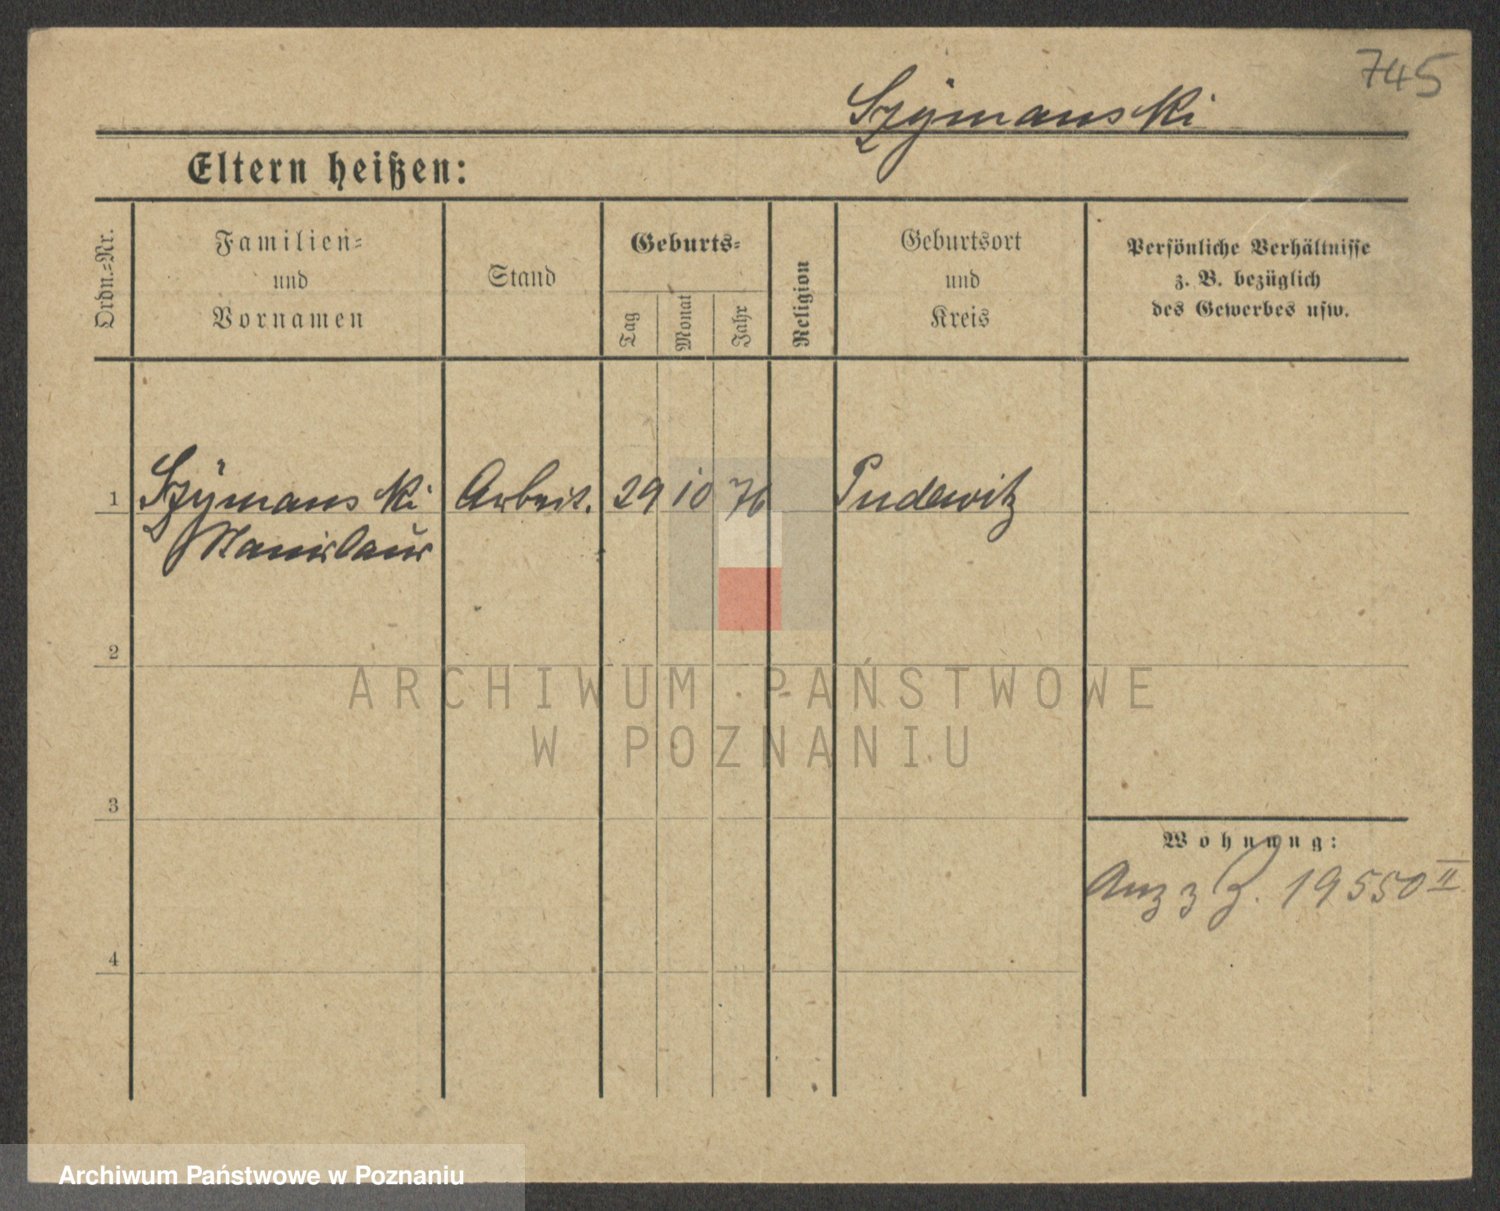 745
Szymanski
Eltern heißen:
Ordn.-Nr.
Familien-
und
Vornamen
Stand
Geburts-
Tag
Monat
Jahr
Religion
Geburtsort
und
Kreis
Persönliche Verhältnisse
z. B. bezüglich
des Gewerbes usw.
1 Szymanski Arbeit. 29 10 76 Pudewitz
Stanislaus
2
ARCHIWUM PAŃSTWOWE
W POZNANIU
3
Wohnung:
19550 II
4
Archiwum Państwowe w Poznaniu